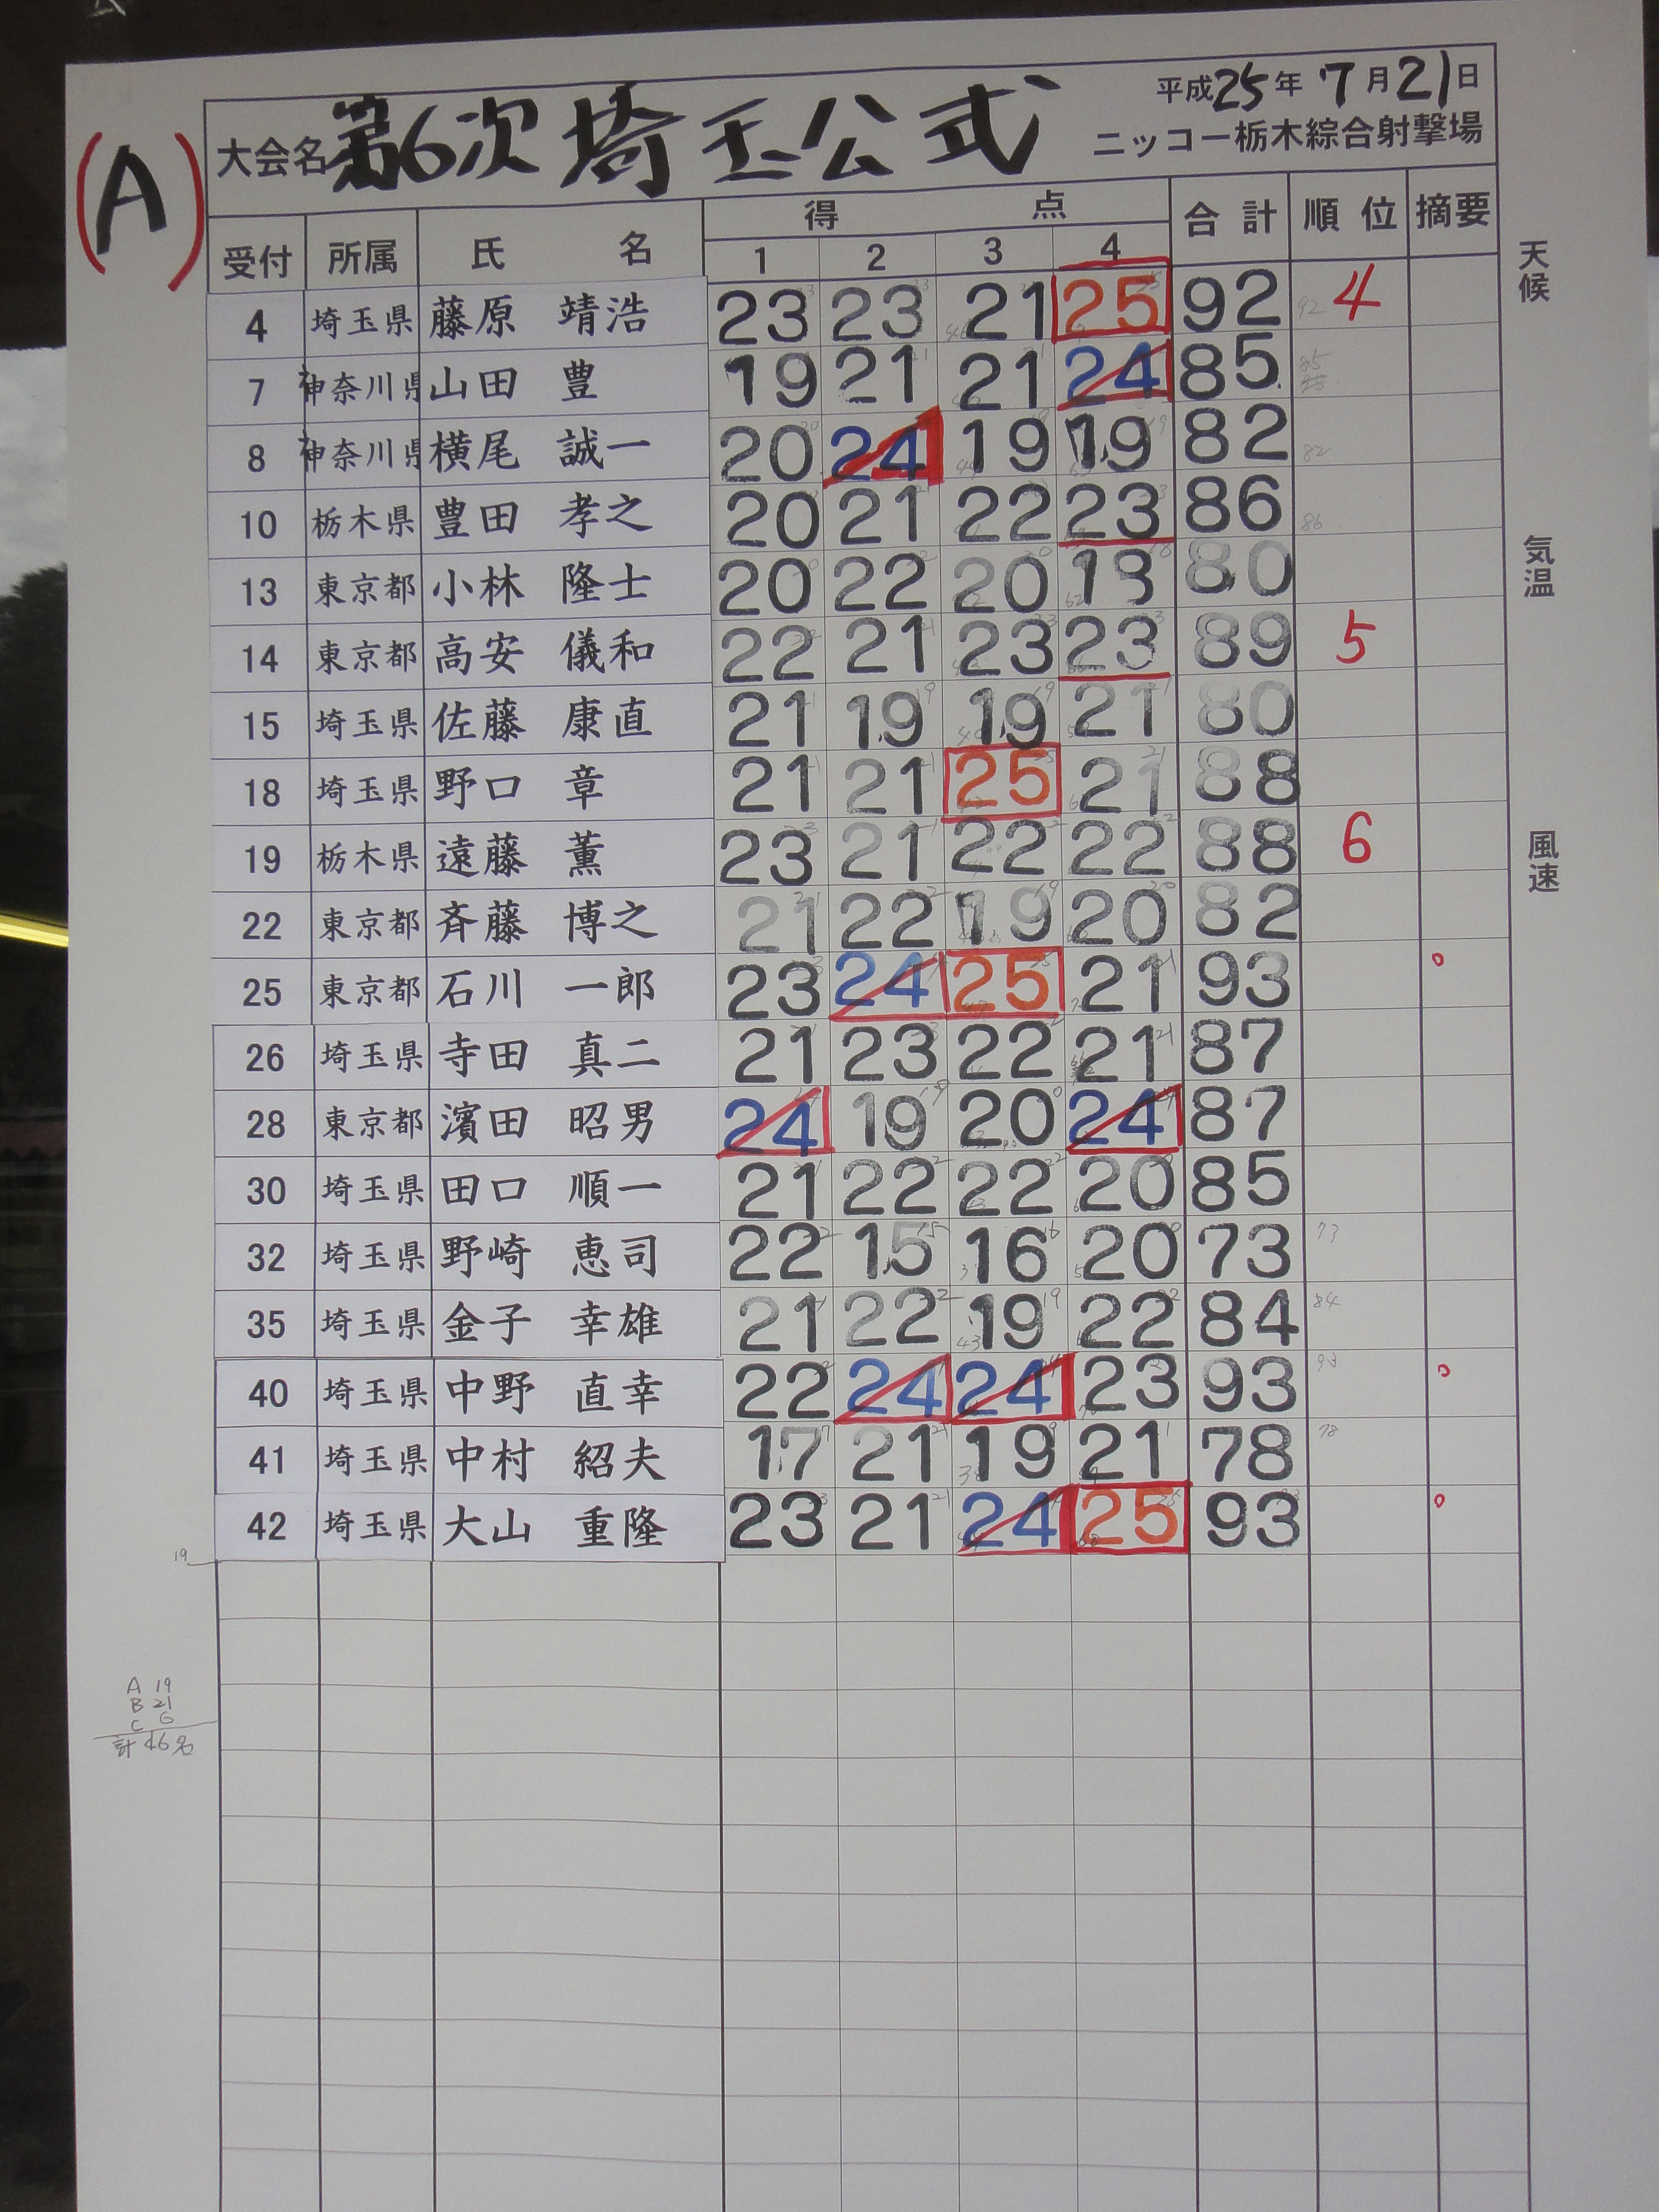 平成25年 7月21日
(A)
大会名 第6次埼玉公式 ニッコー栃木綜合射撃場
受付 所属 氏名 得点 合計 順位 摘要
1 2 3 4
4 埼玉県 藤原 靖浩 23 23 21 25 92 4
7 神奈川県 山田 豊 19 21 21 24 85
8 神奈川県 横尾 誠一 20 24 19 19 82
10 栃木県 豊田 孝之 20 21 22 23 86
13 東京都 小林 隆士 20 22 20 18 80
14 東京都 高安 儀和 22 21 23 23 89 5
15 埼玉県 佐藤 康直 21 19 19 21 80
18 埼玉県 野口 章 21 21 25 21 88
19 栃木県 遠藤 薫 23 21 22 22 88 6
22 東京都 斉藤 博之 21 22 19 20 82
25 東京都 石川 一郎 23 24 25 21 93 °
26 埼玉県 寺田 真二 21 23 22 21 87
28 東京都 濱田 昭男 24 19 20 24 87
30 埼玉県 田口 順一 21 22 22 20 85
32 埼玉県 野崎 恵司 22 15 16 20 73
35 埼玉県 金子 幸雄 21 22 19 22 84
40 埼玉県 中野 直幸 22 24 24 23 93 °
41 埼玉県 中村 紹夫 17 21 19 21 78
42 埼玉県 大山 重隆 23 21 24 25 93 °
天候
気温
風速
19
A 19
B 21
C 6
計 46名